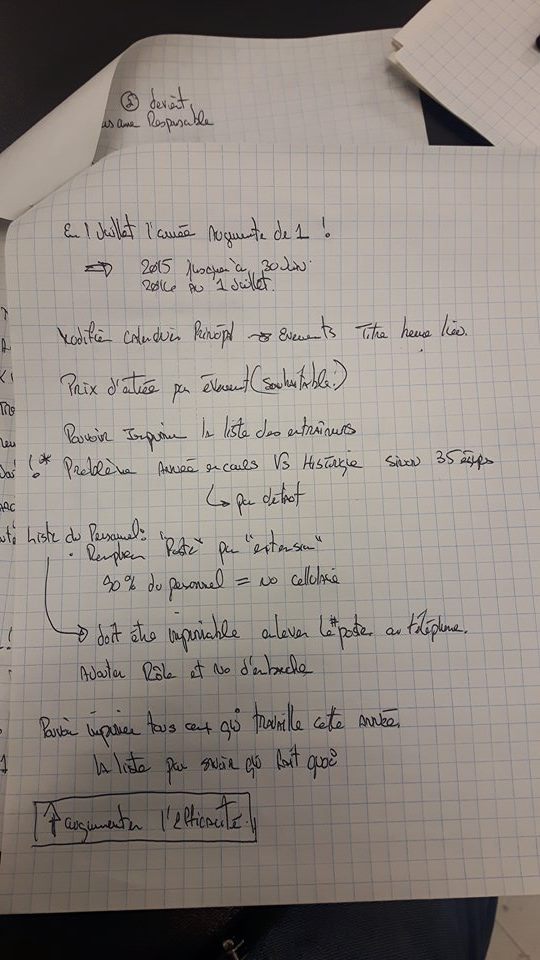 ② devient
Responsable
En 1 Juillet l'année Augmente de 1 !
⇒ 2015 jusqu'à 30 Juin
2016 Au 1 Juillet.
Principal → Evements Titre heure lieu.
Prix d'entrée par évement (souhaitable.)
Pouvoir Imprimer la liste des entraîneurs
!* Problème Année en cours Vs Historique sinon 35 équps
↳ par défaut
Liste du Personnel:
• Remplacer "Poste" par "extension"
90 % du personnel = no cellulaire
→ doit être imprimable enlever le # poste au téléphone.
Ajouter Rôle et No d'embauche
Pouvoir imprimer tous ceux qui travaille cette année.
la liste par savoir qui fait quoi
↑ augmenter l'efficacité.